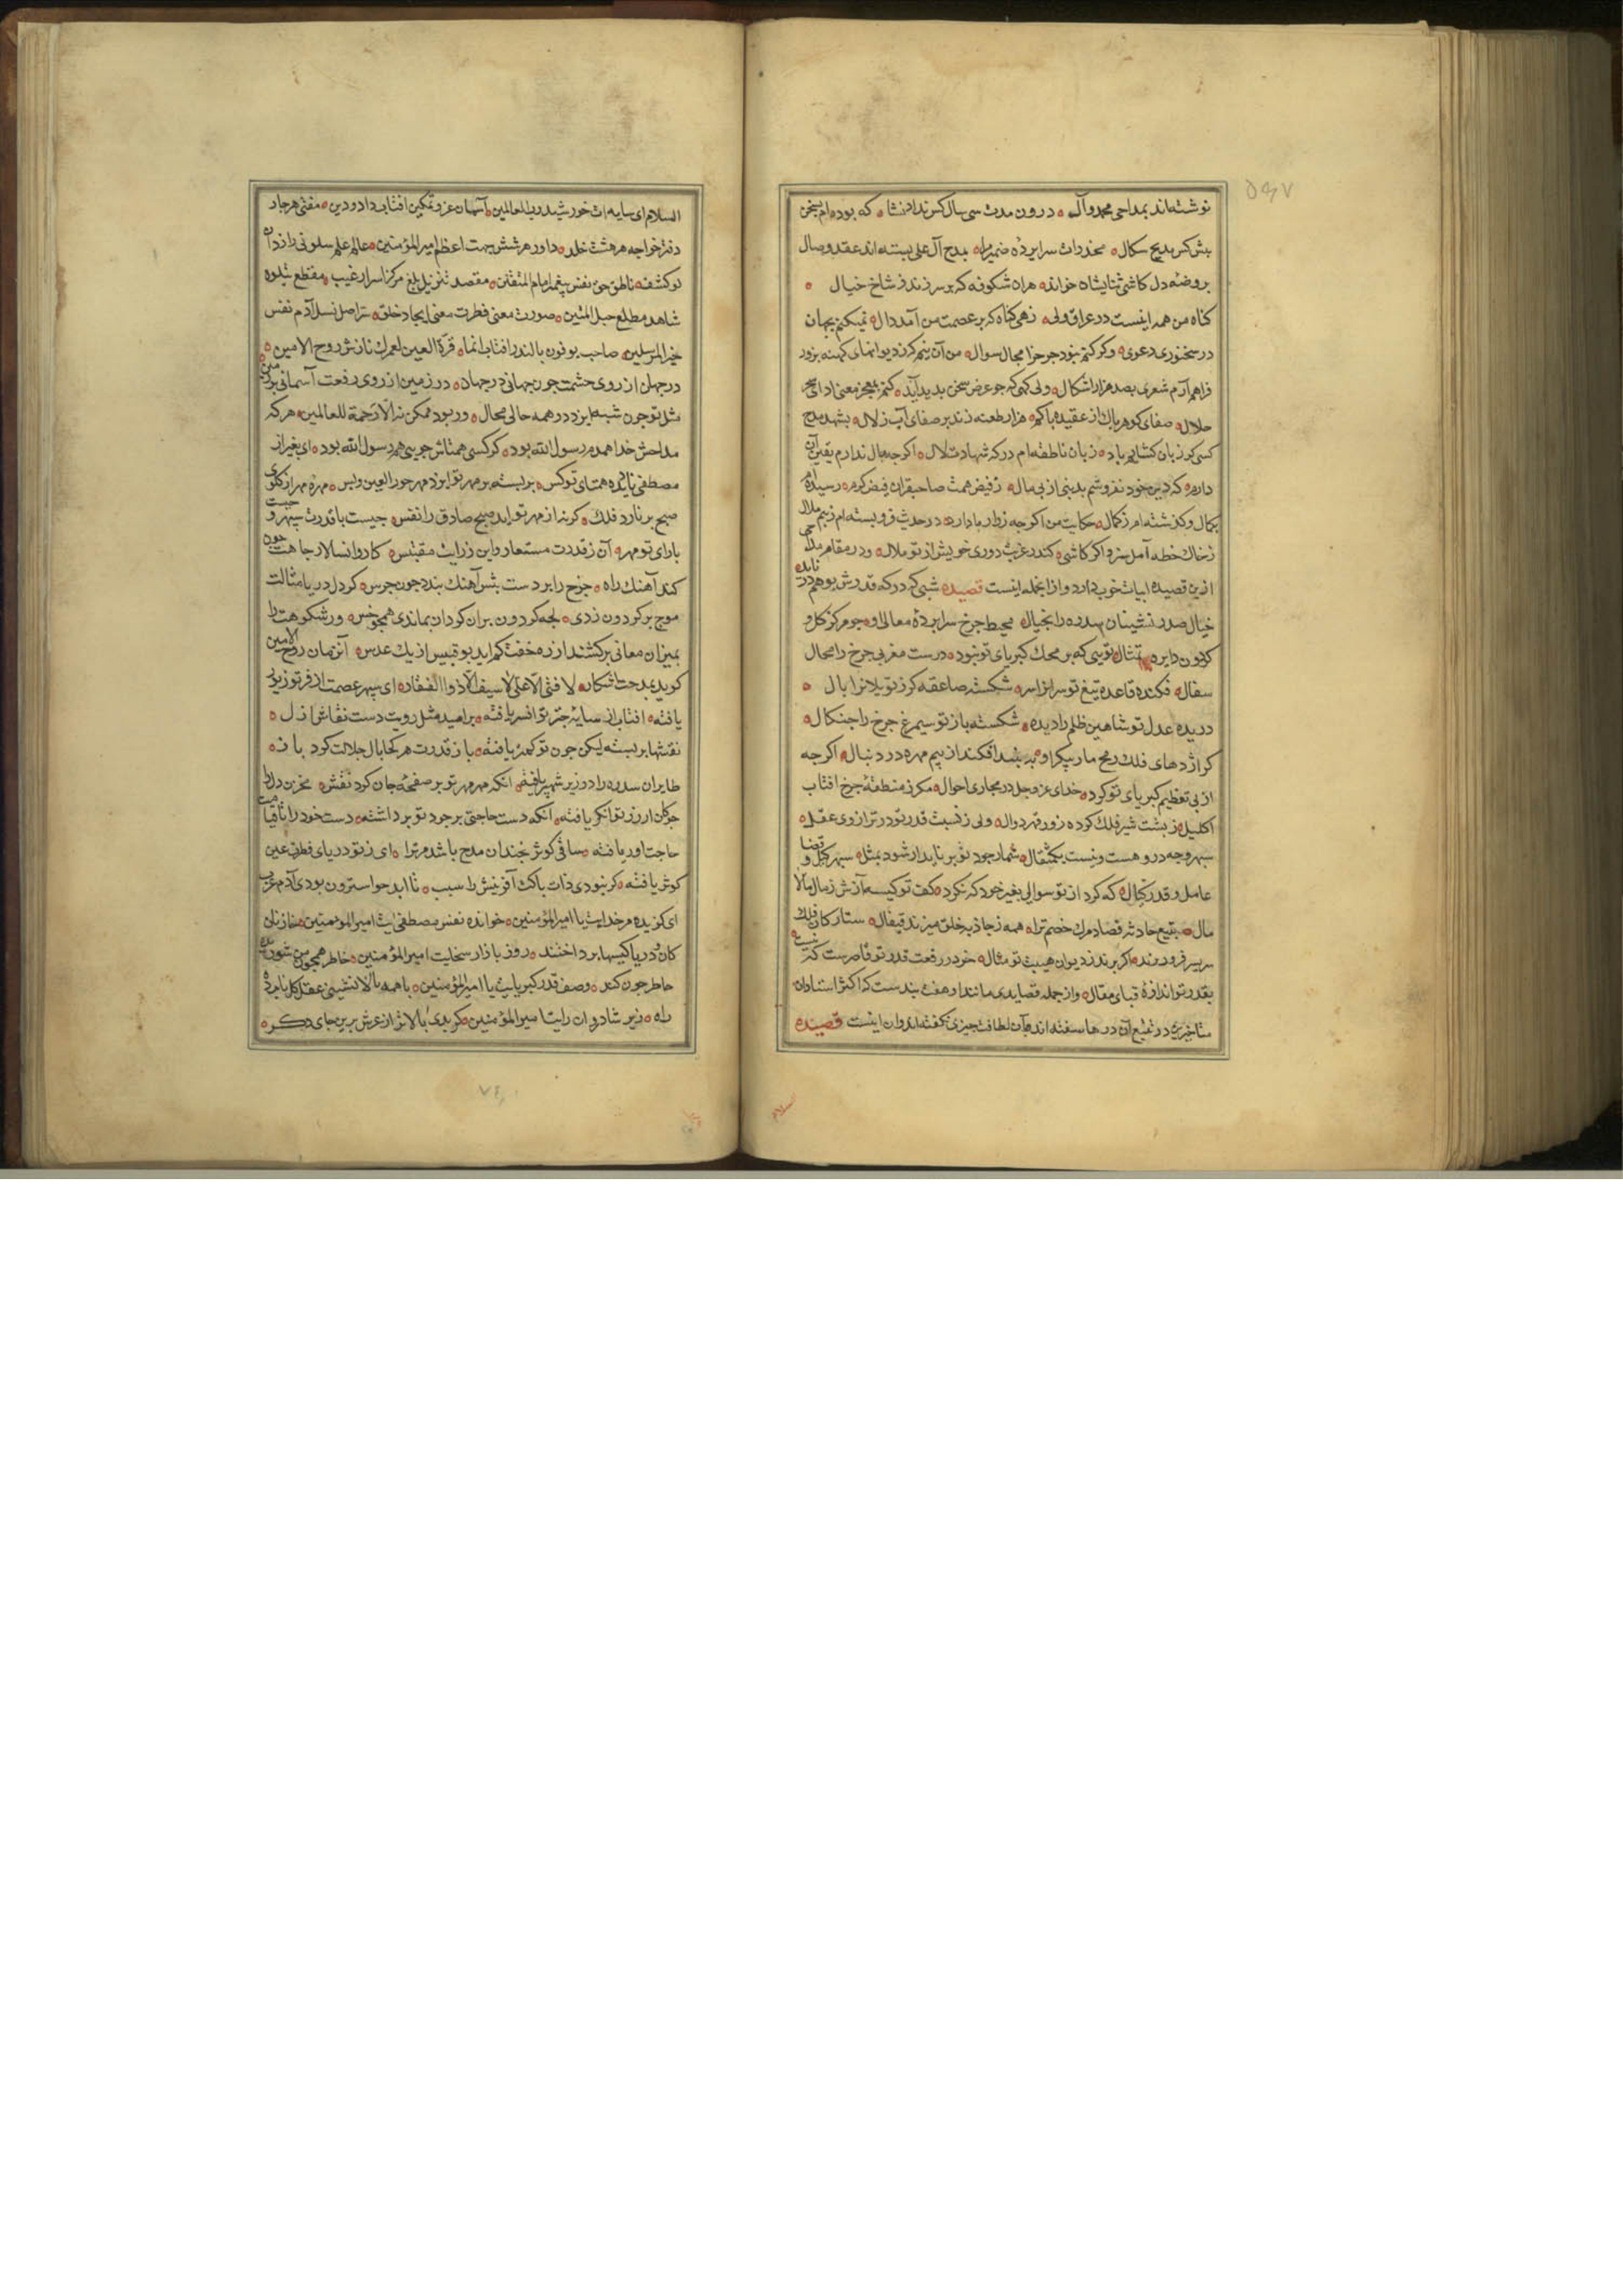 نوشته‌اند بمداحی محمد و آل ه درون مدت سی سال کس نداد نشا ه که بوده‌ام بسخن
پیش کس بدیح سکال ه مخدرات سراپردهٔ ضمیر مرا ه بمدح آل علی بسته‌اند عقد وصال
بروضهٔ دل کاشی ثنای شاه خوانده هران شکوفه که برسر زند ز شاخ خیال ه
کناه من همه اینست در عراق ولی ه زهی کناه که بر عصمت من آمد دال ه نمیکنم بجهان
در سخنوری دعوی ه وکر کنم نبود جز مجال سوال ه من آن نیم که ز دیوانهای کهنه بزور
فراهم آرم شعری بصد هزار اشکال ه ولی کهی که جو عرض سخن پدید آید ه کنم بمعجز معنی ادای سحر
حلال ه صفای کوهر پاک از عقیدهٔ پاکم ه هزار طعنه زند بر صفای آب زلال ه بشهد مدح
کسی کر زبان کشایم باد ه زبان ناطقه‌ام درکه شهادت لال ه اکر جه مال ندارم یقین آن
دارم ه که دین خود نفروشم بدینی از پی مال ه ز فیض همت صاحبقران فیض کرم ه رسیده‌ام
بکمال و کذشته‌ام ز کمال ه حکایت من اکر جه ز وار یادارد ه در حدیث فرو بسته‌ام ز بیم ملال
ز خاک خطه آمل منم و اکر کاشی ه کند ز غربت و دوری خویش از تو ملال ه و در مقام مداحی
ازین قصیده ابیات خوب دارد و از انجمله اینست قصیده شبی که درکه قدرش بوهم در ناید
خیال صدرنشینان سدره را بخیال ه محیط جرخ سراپردهٔ معالی او ه جو مرکز کل و
کردون دایره تمثال ه تویی که بر محک کبریای تو نبود ه درست مغربی جرخ را مجال
سفال ه فکنده قاعده تیغ تو سران را سر ه شکسته صاعقه کرز تو یلانرا بال ه
دریده عدل تو شاهین ظلم را دیده ه شکسته باز تو سیمرغ جرخ را جنکال ه
کر اژدهای فلک رمح مار پیکر او ه به بیند افکند از بیم مهره در دنبال ه اکر جه
از پی تعظیم کبریای تو کرد ه خدای عز و جل در مجاری احوال ه مکر ز منطقهٔ جرخ افتاب
اکلیل ه ز پشت شیر فلک کرده زور قهر دوال ه ولی ز نسبت قدر تو در ترازوی عقل ه
سپهر و جه درو هست و نیست یکمثقال ه شمار جود تو بر ناید ار شود بمثل ه سپهر کیل و قضا
عامل و قدر کیال ه که کرد از تو سوالی بغیر خود که نکرد ه کف تو کیسه آزش ز مال مالا
مال ه بتیغ حادثه قصاد مرک خصم ترا ه همه ز جاذبه خلق میزند قیفال ه ستار کان فلک
سر بسر فرود رند ه اکر برند ز دیوان هیبت تو مثال ه خرد ز رفعت قدر تو قاصرست که نیست
بقدر تو اندازهٔ قبای مقال ه و از جمله قصایدی مانند او هفت بندست که اکثر استادان
متاخرین در تتبع آن درها سفته‌اند و بآن لطافت جیزی نکفته‌اند و ان اینست قصیده
السلام ای سایه‌ات خورشید رب العالمین ه آسمان عز و تمکین افتاب داد و دین ه مفتی هر جار
دفتر خواجه هر هشت خلد ه داور هر شش جهت اعظم امیر المؤمنین ه عالم علم سلونی رازدان
لو کشف ه ناطق حق نفس پیغمبر امام المتقین ه مقصد تنزیل بلغ مرکز اسرار غیب ه مقطع یتلوه
شاهد مطلع حبل المتین ه صورت معنی فطرت معنی ایجاد خلق ه سر اصل نسل آدم نفس
خیر المرسلین ه صاحب یوفون بالنذر افتاب انما ه قرة العین لعمرک نازش روح الامین ه
در جهان از روی حشمت جون جهانی در جهان ه در زمین از روی رفعت آسمانی بر زمین
مثل تو جون شبه ایزد در همه حالی محال ه ور بود ممکن نه الا رحمة للعالمین ه هر که
مداحش خدا همدم رسول الله بود ه کر کسی همتاش جوید هم رسول الله بود ه ای بغیر از
مصطفی نابوده همتای تو کس ه بر بسته بر مهر تو ایزد مهر حور العین و بس ه مهره مهر از کلوی
صبح بر نارد فلک ه کر نه از مهر تو اید صبح صادق را نفس ه جیست با قدرت سپهر و جیست
با رای تو مهر ه آن ز قدرت مستعار و این ز رایت مقتبس ه کاروانسالار جاهت جون
کند آهنک راه ه جرخ را بر دست پیش آهنک بندد جون جرس ه کر دل دریا مثالت
موج بر کردون زدی ه لجه کردون بران کردان بماندی همجو خس ه ور شکوهت را
بمیزان معانی برکشند از ره خفت کم اید بوقبیس از یک عدس ه آنزمان روح الامین
کوید بمدحت اشکار ه لا فتی الا علی لا سیف الا ذو الفقار ه ای سپهر عصمت از فر تو زیور
یافته ه افتاب از سایهٔ جتر تو افسر یافته ه بر امید مثل رویت دست نقاش ازل ه
نقشها بر بسته لیکن جون تو کمتر یافته ه باز قدرت هر کجا بال جلالت کرد باز ه
طایران سدره را در زیر شهپر یافته ه آنکه مهر مهر تو بر صفحهٔ جان کرد نقش ه مخزن دل را
جو کان از زر توانکر یافته ه آنکه دست حاجتی بر جود تو برداشته ه دست خود را تا قیامت
حاجت اور یافته ه ساقی کوثر نخندان مدح باشد مر ترا ه ای ز تو دریای فطرت عین
کوثر یافته ه کر نبودی ذات پاکت آفرینش را سبب ه تا ابد حوا سترون بودی آدم عزب
ای کزیده مر خدایت یا امیر المؤمنین ه خوانده نفس مصطفایت امیر المؤمنین ه خازنان
کان و دریا کیسها پرداختند ه روز بازار سخایت امیر المؤمنین ه خاطر همجون من شوریده
خاطر جون کند ه وصف قدر کبریایت یا امیر المؤمنین ه با همه بالانشینی عقل کل نابرده
راه ه زیر شادروان رایت امیر المؤمنین ه کر بدی بالاتر از عرش برین جای دکر ه